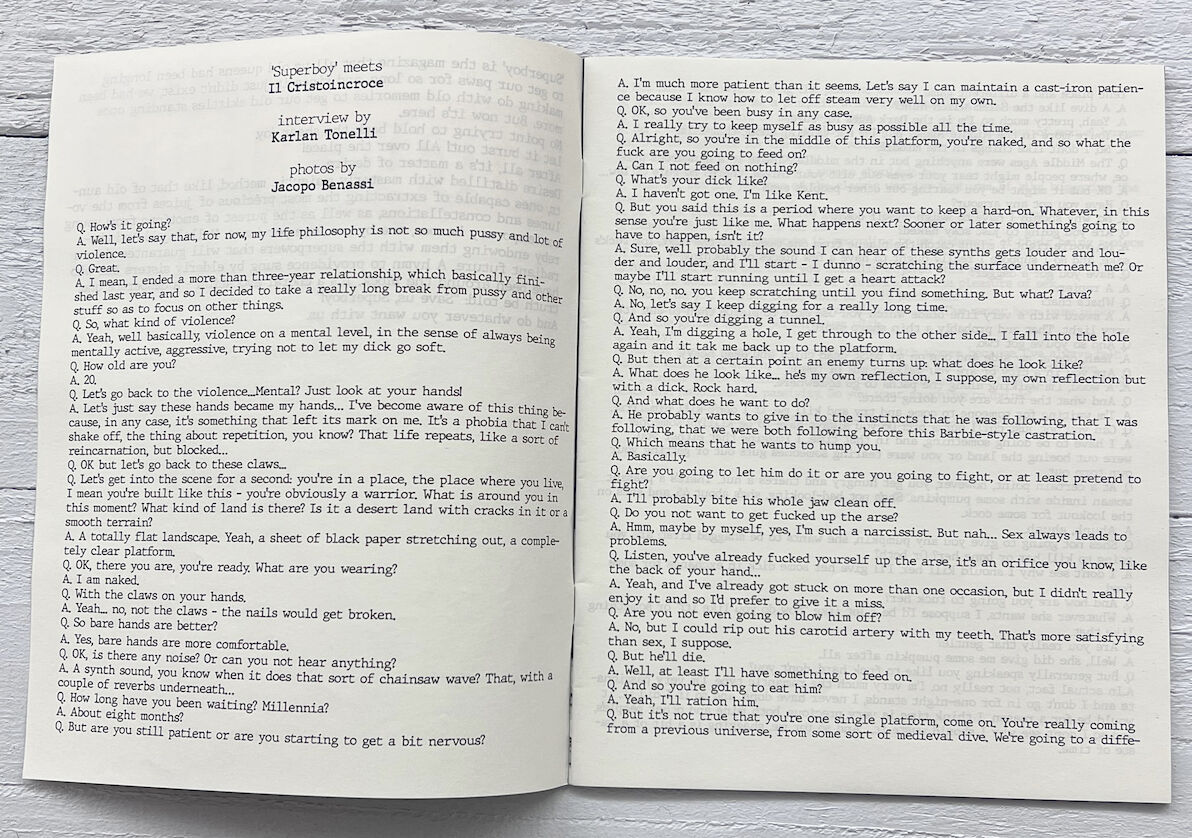 'Superboy' meets
Il Cristoincroce
interview by
Karlan Tonelli
photos by
Jacopo Benassi
Q. How's it going?
A. Well, let's say that, for now, my life philosophy is not so much pussy and lot of
violence.
Q. Great.
A. I mean, I ended a more than three-year relationship, which basically fini-
shed last year, and so I decided to take a really long break from pussy and other
stuff so as to focus on other things.
Q. So, what kind of violence?
A. Yeah, well basically, violence on a mental level, in the sense of always being
mentally active, aggressive, trying not to let my dick go soft.
Q. How old are you?
A. 20.
Q. Let's go back to the violence...Mental? Just look at your hands!
A. Let's just say these hands became my hands... I've become aware of this thing be-
cause, in any case, it's something that left its mark on me. It's a phobia that I can't
shake off, the thing about repetition, you know? That life repeats, like a sort of
reincarnation, but blocked...
Q. OK but let's go back to these claws...
Q. Let's get into the scene for a second: you're in a place, the place where you live,
I mean you're built like this - you're obviously a warrior. What is around you in
this moment? What kind of land is there? Is it a desert land with cracks in it or a
smooth terrain?
A. A totally flat landscape. Yeah, a sheet of black paper stretching out, a comple-
tely clear platform.
Q. OK, there you are, you're ready. What are you wearing?
A. I am naked.
Q. With the claws on your hands.
A. Yeah... no, not the claws - the nails would get broken.
Q. So bare hands are better?
A. Yes, bare hands are more comfortable.
Q. OK, is there any noise? Or can you not hear anything?
A. A synth sound, you know when it does that sort of chainsaw wave? That, with a
couple of reverbs underneath...
Q. How long have you been waiting? Millennia?
A. About eight months?
Q. But are you still patient or are you starting to get a bit nervous?
A. I'm much more patient than it seems. Let's say I can maintain a cast-iron patien-
ce because I know how to let off steam very well on my own.
Q. OK, so you've been busy in any case.
A. I really try to keep myself as busy as possible all the time.
Q. Alright, so you're in the middle of this platform, you're naked, and so what the
fuck are you going to feed on?
A. Can I not feed on nothing?
Q. What's your dick like?
A. I haven't got one. I'm like Kent.
Q. But you said this is a period where you want to keep a hard-on. Whatever, in this
sense you're just like me. What happens next? Sooner or later something's going to
have to happen, isn't it?
A. Sure, well probably the sound I can hear of these synths gets louder and lou-
der and louder, and I'll start - I dunno - scratching the surface underneath me? Or
maybe I'll start running until I get a heart attack?
Q. No, no, no, you keep scratching until you find something. But what? Lava?
A. No, let's say I keep digging for a really long time.
Q. And so you're digging a tunnel.
A. Yeah, I'm digging a hole, I get through to the other side... I fall into the hole
again and it tak me back up to the platform.
Q. But then at a certain point an enemy turns up: what does he look like?
A. What does he look like... he's my own reflection, I suppose, my own reflection but
with a dick. Rock hard.
Q. And what does he want to do?
A. He probably wants to give in to the instincts that he was following, that I was
following, that we were both following before this Barbie-style castration.
Q. Which means that he wants to hump you.
A. Basically.
Q. Are you going to let him do it or are you going to fight, or at least pretend to
fight?
A. I'll probably bite his whole jaw clean off.
Q. Do you not want to get fucked up the arse?
A. Hmm, maybe by myself, yes, I'm such a narcissist. But nah... Sex always leads to
problems.
Q. Listen, you've already fucked yourself up the arse, it's an orifice you know, like
the back of your hand...
A. Yeah, and I've already got stuck on more than one occasion, but I didn't really
enjoy it and so I'd prefer to give it a miss.
Q. Are you not even going to blow him off?
A. No, but I could rip out his carotid artery with my teeth. That's more satisfying
than sex, I suppose.
Q. But he'll die.
A. Well, at least I'll have something to feed on.
Q. And so you're going to eat him?
A. Yeah, I'll ration him.
Q. But it's not true that you're one single platform, come on. You're really coming
from a previous universe, from some sort of medieval dive. We're going to a diffe-